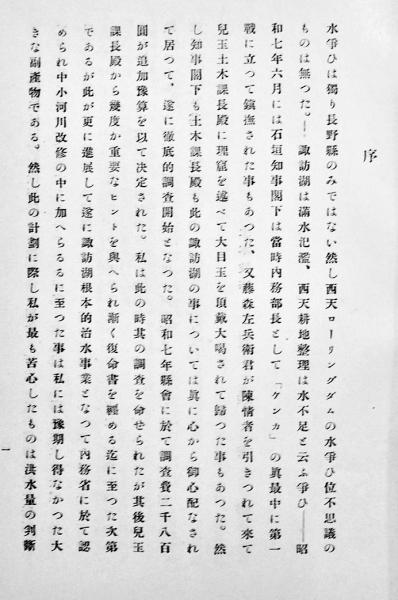 序
水爭ひは獨り長野縣のみではない然し西天ローリングダムの水爭ひ位不思議の
ものは無つた。―諏訪湖は滿水氾濫、西天耕地整理は水不足と云ふ爭ひ―昭
和七年六月には石垣知事閣下は當時内務部長として「ケンカ」の眞最中に第一
戰に立つて鎭撫された事もあつた、又藤森左兵衞君が陳情者を引きつれて來て
兒玉土木課長殿に理窟を述べて大目玉を頂戴大喝されて歸つた事もあつた。然
し知事閣下も土木課長殿も此の諏訪湖の事については眞に心から御心配なされ
て居つて、遂に徹底的調査開始となつた。昭和七年縣會に於て調査費二千八百
圓が追加豫算を以て决定された。私は此の時其の調査を命ぜられたが其後兒玉
課長殿から幾度か重要なヒントを與へられ漸く復命書を纒める迄に至つた次第
であるが此が更に進展して遂に諏訪湖根本的治水事業となつて内務省に於て認
められ中小河川改修の中に加へらるるに至つた事は私には豫期し得なかつた大
きな副産物である。然し此の計劃に際し私が最も苦心したものは洪水量の判斷
一